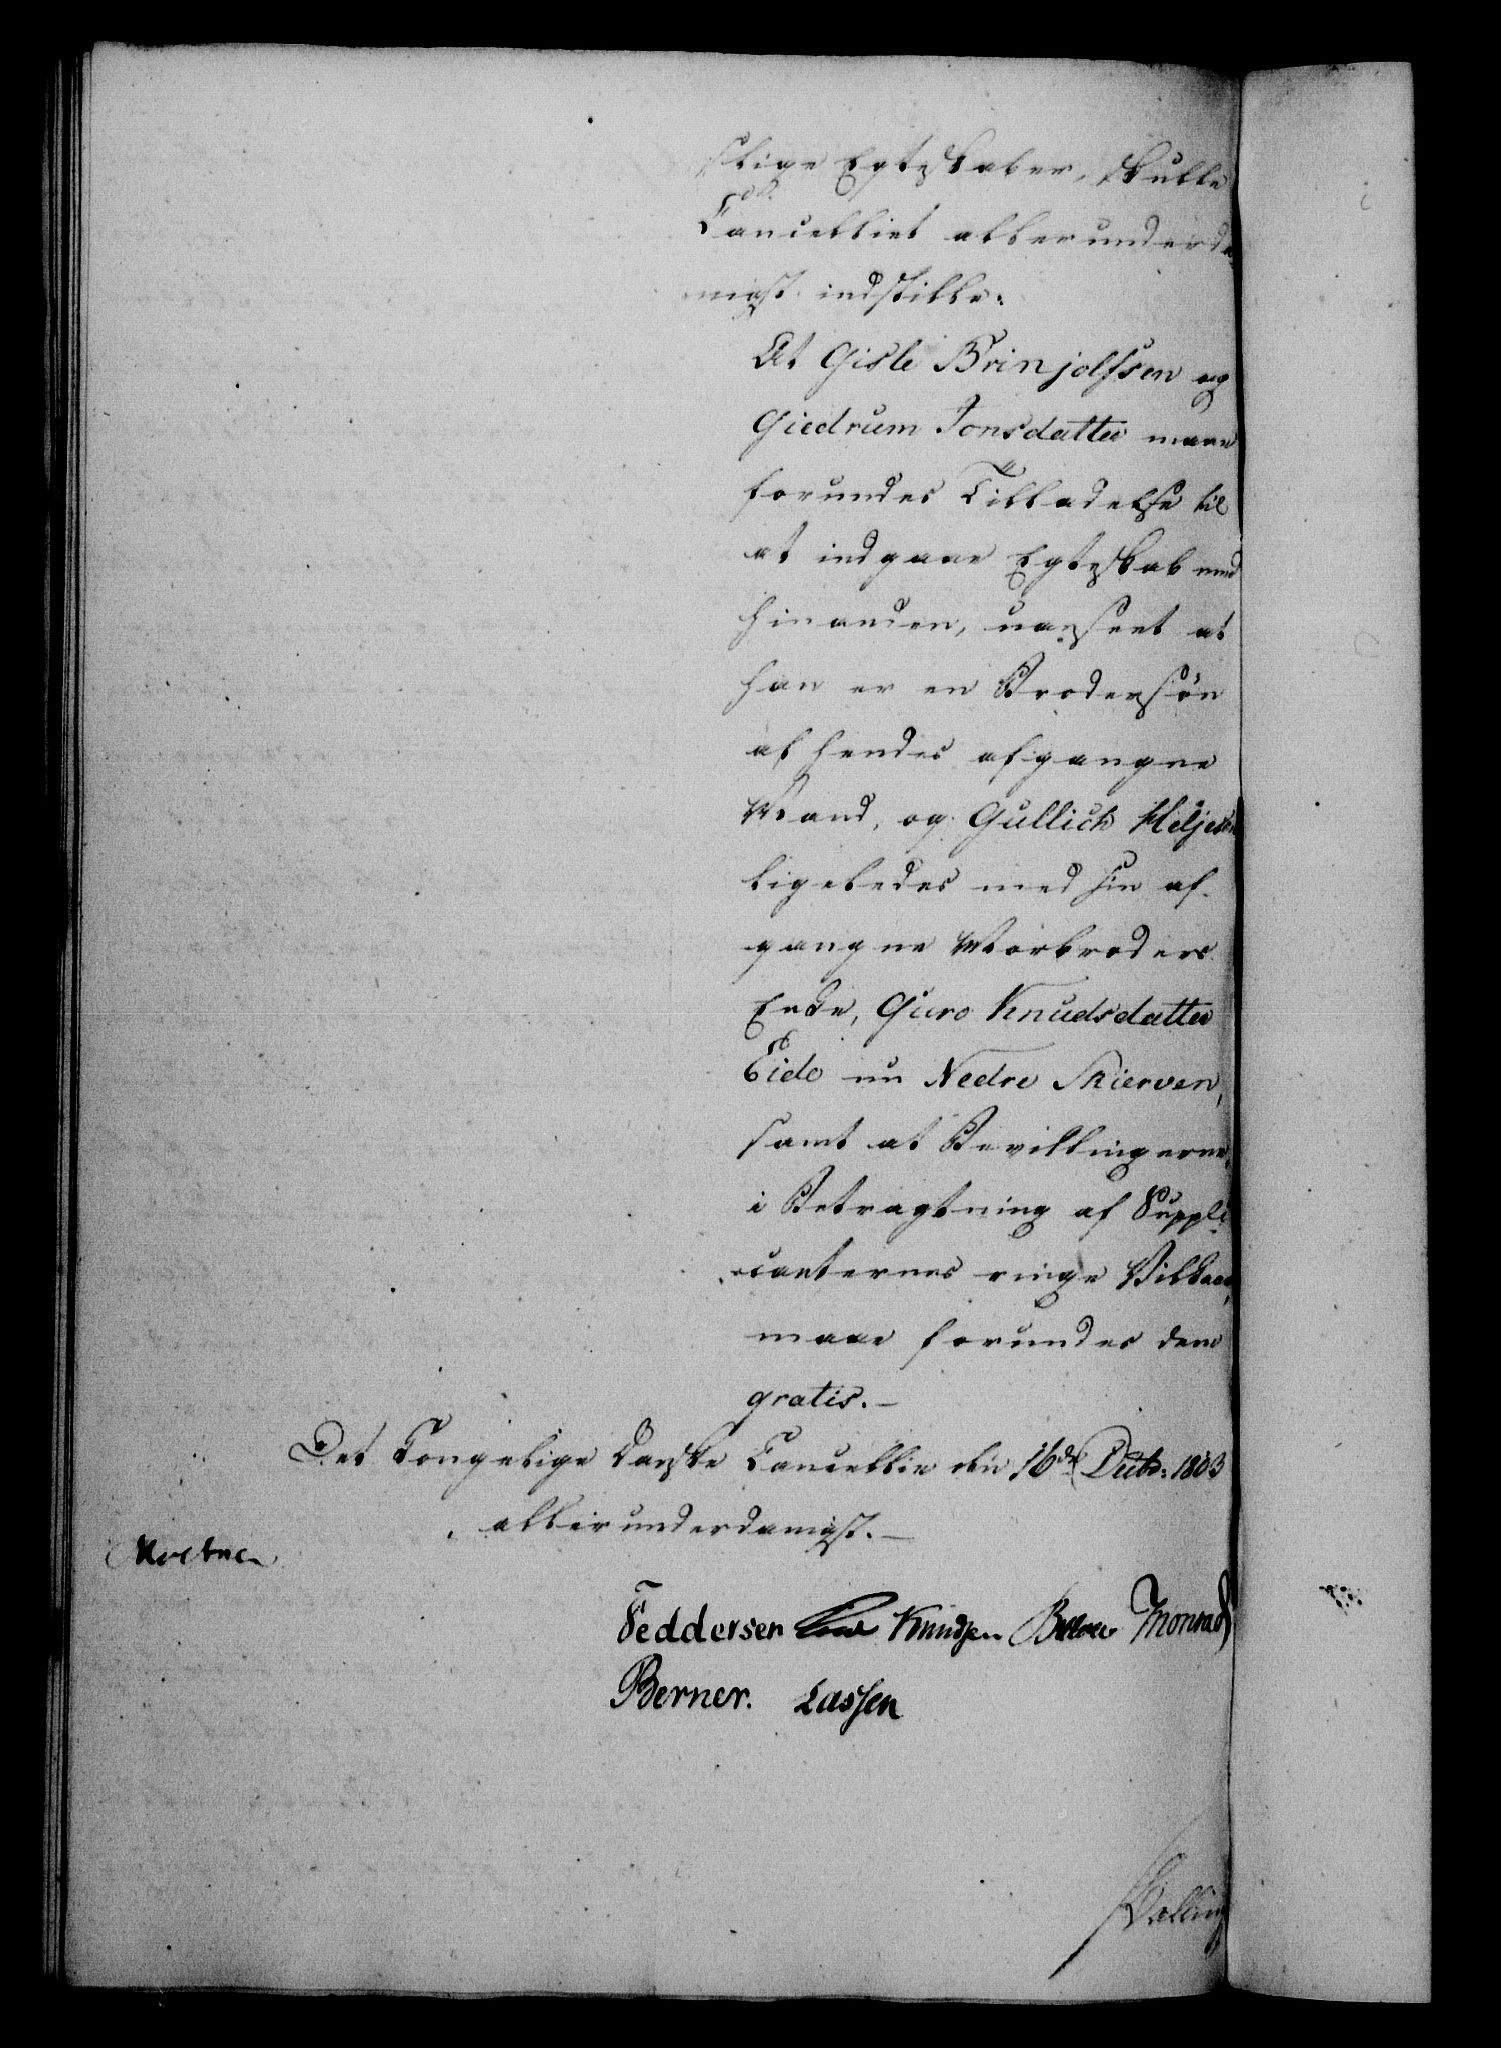 slige Egteskaber, skulle
Cancelliet allerunderda-
nigst indstille:
At Gisle Brinjolfssen og
Giedrum Jonsdatter maae
forundes Tilladelse til
at indgaae Egteskab med
hinanden, uanseet at
han er en Brodersøn
af hendes afgangne
Mand, og Gullich Heljesen
ligeledes med sin af-
gangne Morbroders
Enke, Guro Knudsdatter
Eide nu Nedre Skierven,
samt at Bevillingerne,
i Betragtning af Suppli-
canternes ringe Vilkaar,
maae forundes dem
gratis.—
Det Kongelige Danske Cancellie den 16de Decbr: 1803
allerunderdanigst.—
Feddersen Knudsen Monrad
Berner. Lassen